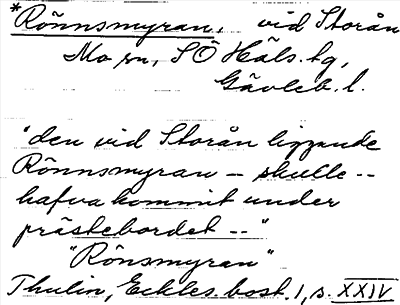 *Rönnsmyran, vid Storån
Mo sn, SÖ Häls. tg,
Gävleb. l.
"den vid Storån liggande
Rönnsmyran – skulle --
hafva kommit under
prästebordet --"
"Rönsmyran"
Thulin, Eckles. bost. 1, s. XXIV